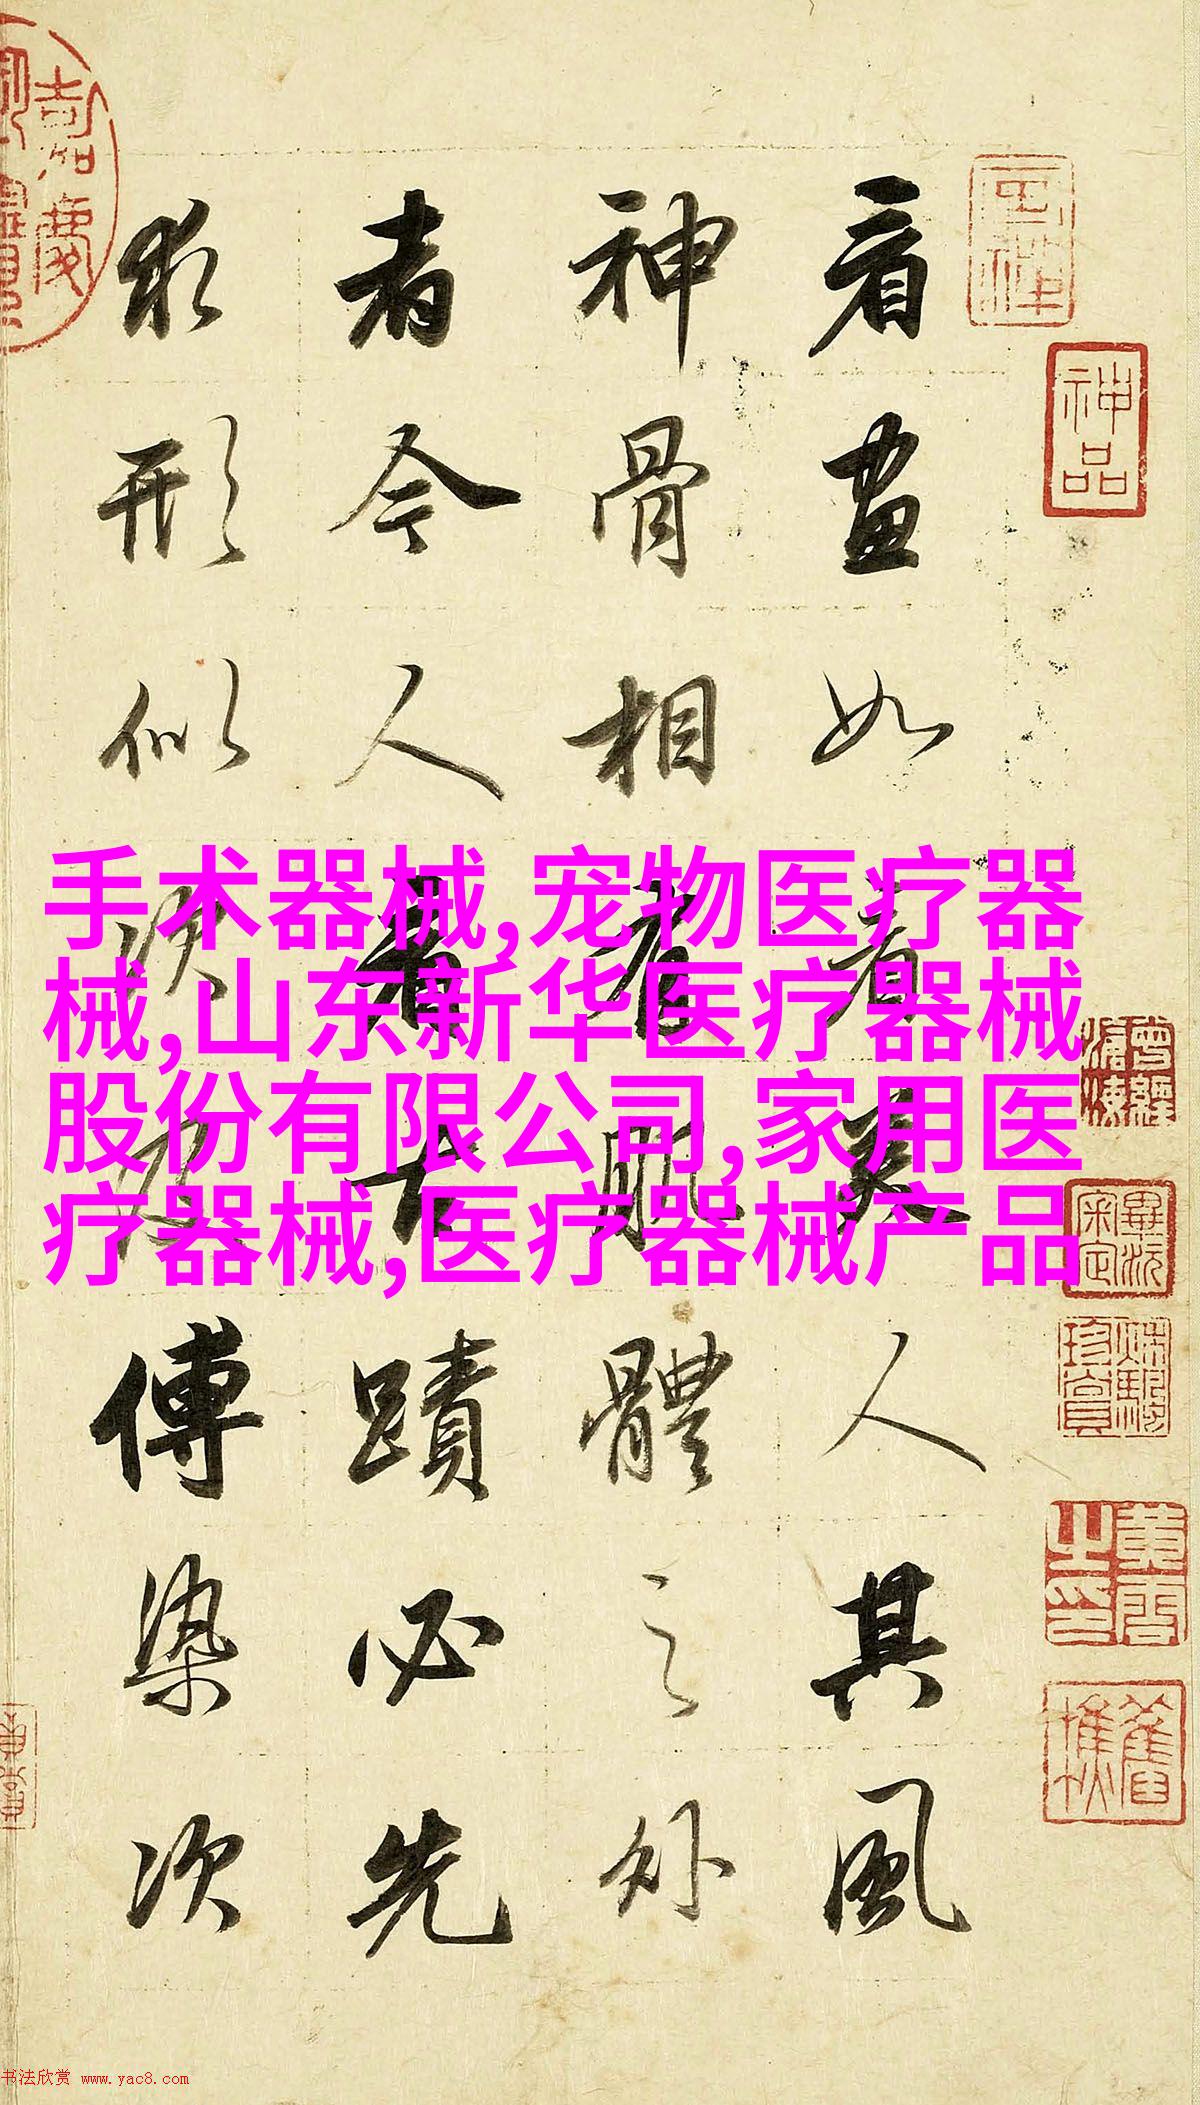 看畫如看美人其風
神骨相有肌體之外
者今人看古蹟必先
求形似次及傅染次
手术器械,宠物医疗器
械,山东新华医疗器械
股份有限公司,家用医
疗器械,医疗器械产品
神品
嘉慶
书法欣赏 www.yac8.com